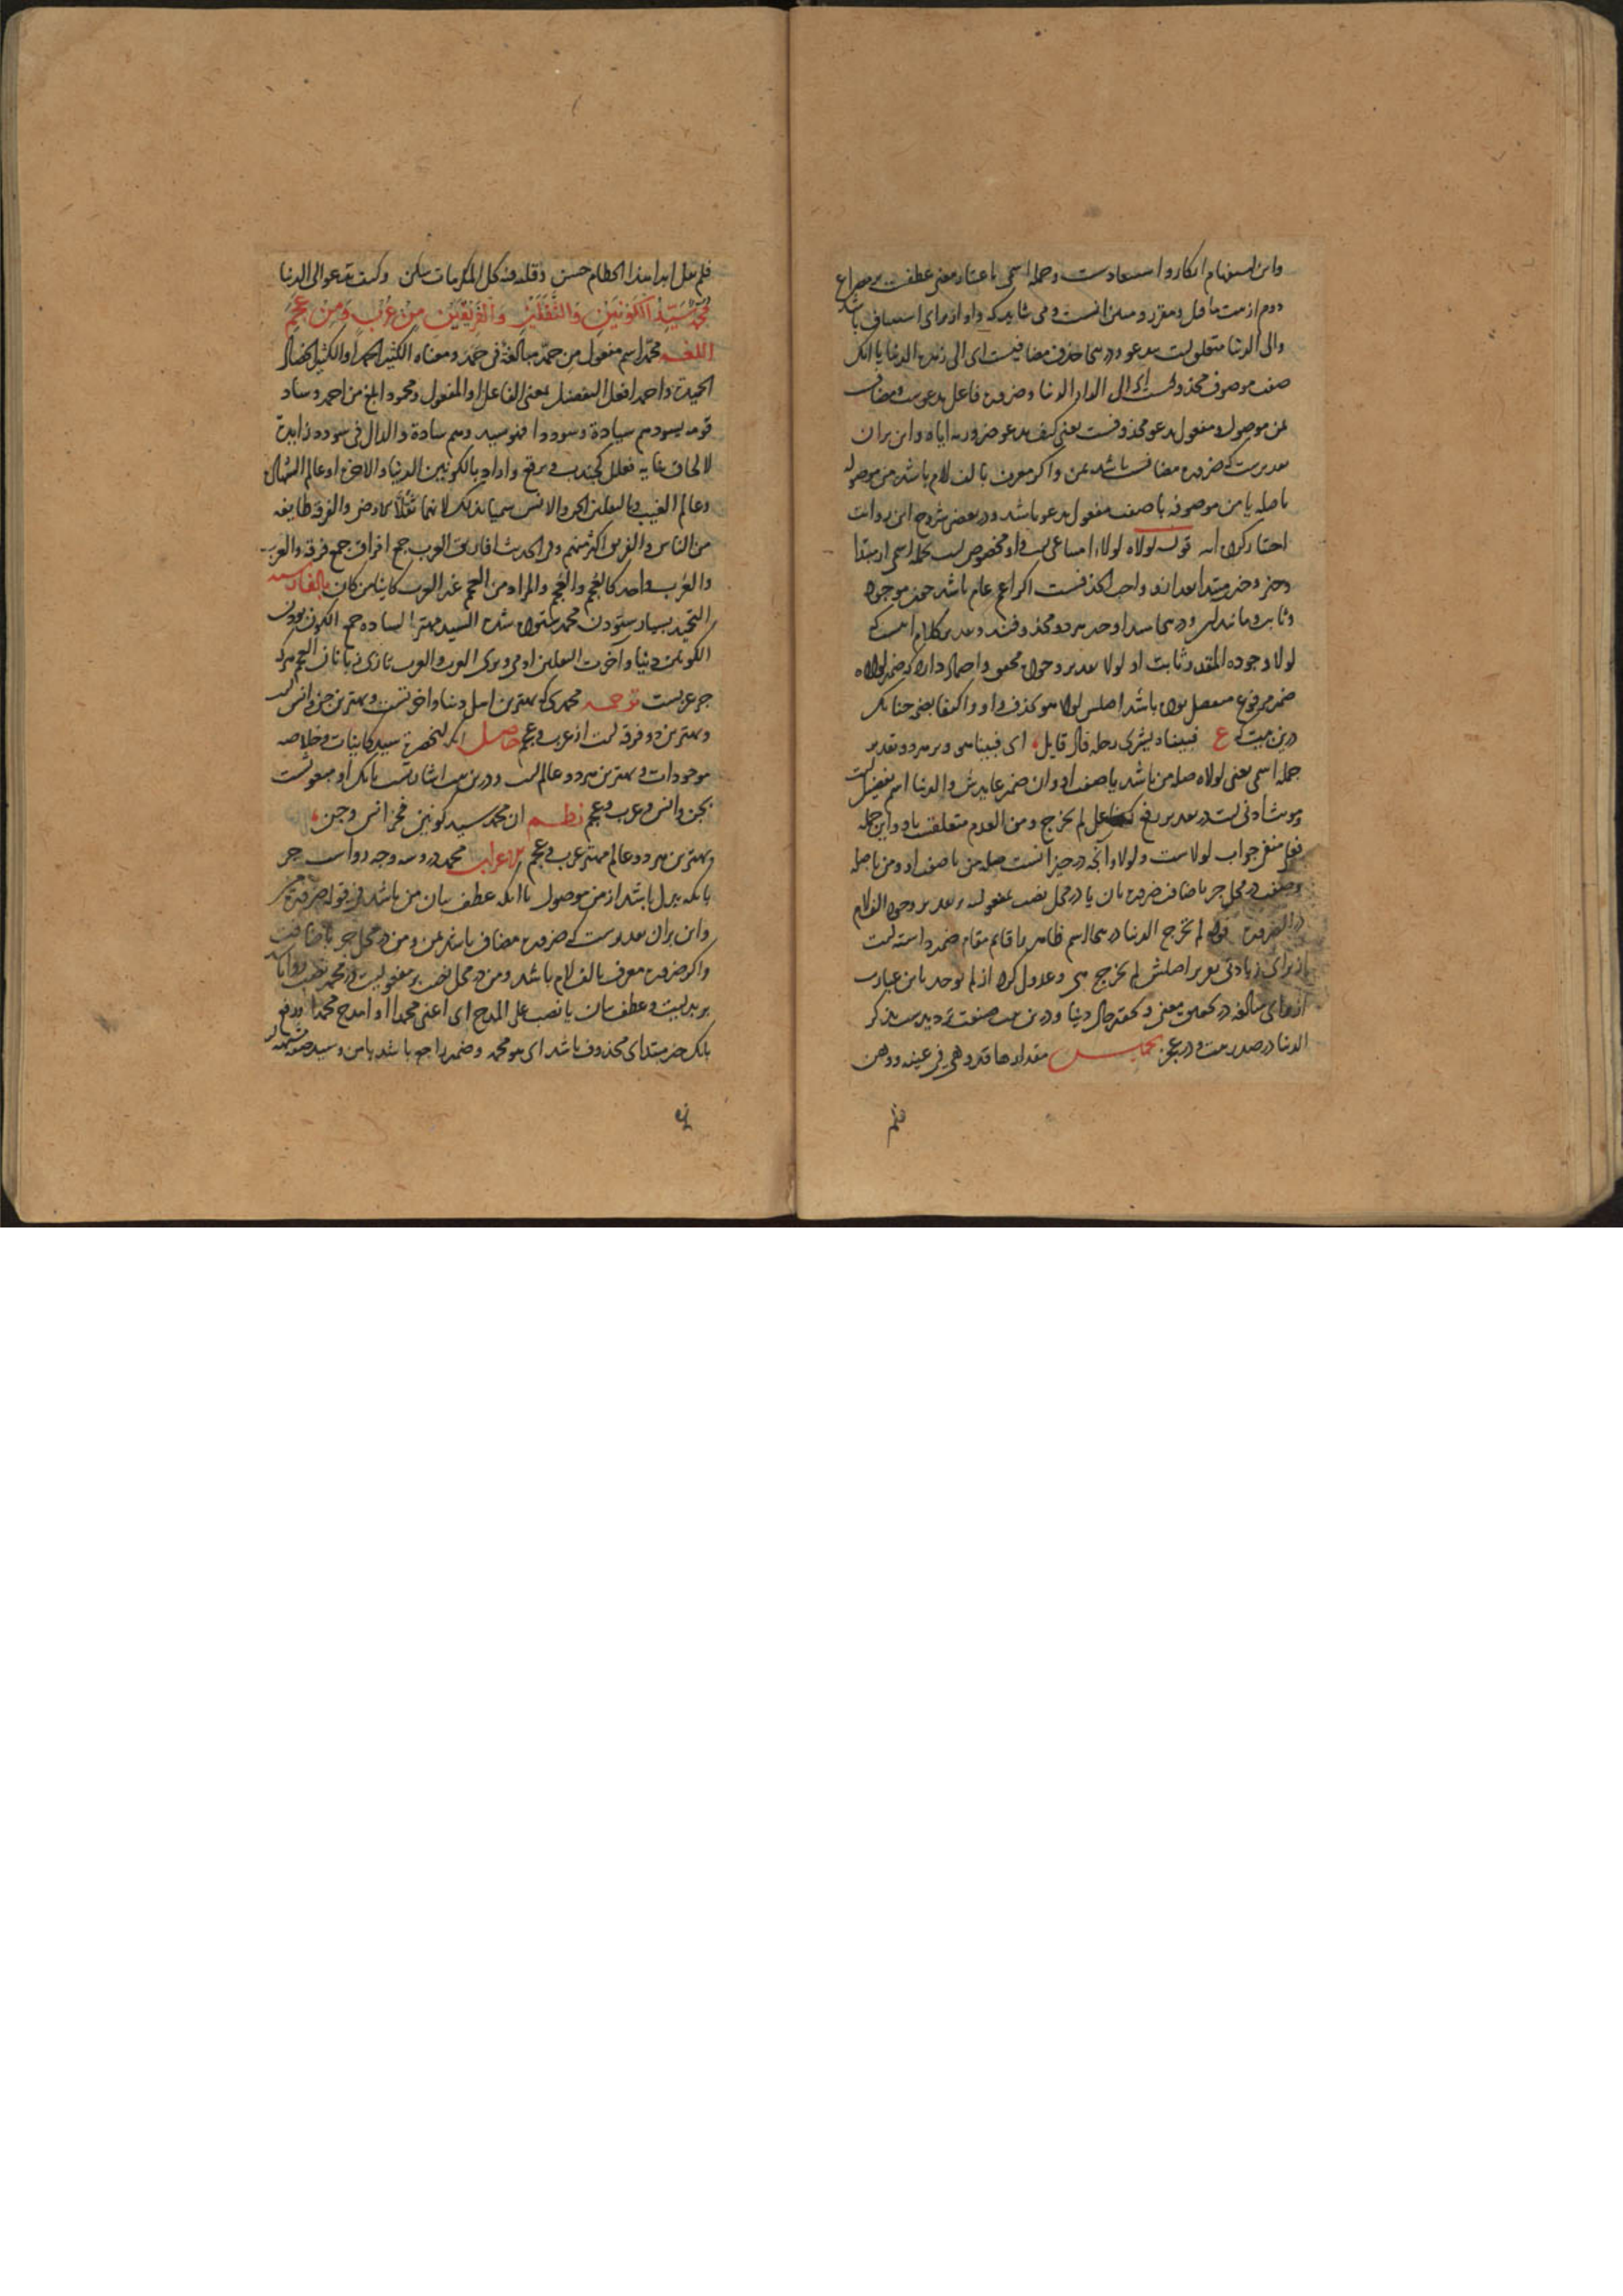 واین استفهام انکار و استبعادست وجمله اسمی باعتبار معنی عطفت بر مصراع
دوم از بیت ماقبل ومقرر ومبین انست ومی شاید که واو از برای استیناف باشد
والی الدنیا متعلق است بتدعو ودر اینجا حذف مضافیست ای الی زینة الدنیا یا انک
صفت موصوف محذوفست ای الی الدار الدنیا وضرورة فاعل تدعوست ومضاف
بمن موصول ومفعول تدعو محذوفست یعنی کیف تدعو ضرورته ایاه واین بران
تقدیرست که ضرورة مضاف باشد بمن واکر معرف بالف لام باشد من موصوله
باصله یا من موصوفه باصفت مفعول تدعو باشد ودر بعضی شروح این روایت
اختیار کرده اند قوله لولاه لولاء امتناعی است واو مخصوص است بجمله اسمی از مبتدا
وخبر وخبر مبتدا بعد از و واجب الحذفست اکر اعم عام باشد چون موجود
وثابت ومانند ان ودر اینجا مبتدا وخبر هر دو محذوفند وتقدیر کلام اینست که
لولا وجوده المقدر ثابت او لولا تقدیر وجود محقق واحتمال دارد که ضمیر لولاه
ضمیر مرفوع منفصل بوده باشد اصلش لولا هو بحذف واو واکتفا بضم چنانک
درین بیت که ع فبیناه یشری رحله قال قایل ای فبینا هی وبر هر دو تقدیر
جمله اسمی یعنی لولاه صله من باشد یا صفت او وان ضمیر عاید بدش والدنیا اسم تفضیل است
ومونث ادنی است در تقدیر رفع که فاعل لم تخرج ومن العدم متعلقست باو واین جمله
فعلی منفی جواب لولاست ولولا وانچه در حیز انست صله من یا صفت او ومن باصله
وصفت در محل جر باضافت ضرورة بان یا در محل نصب بمفعولیت بر تقدیر وجود الف لام
در الضرورة قوله لم تخرج الدنیا در اینجا اسم ظاهر را قایم مقام ضمیر داشته است
از برای زیادتی تقریر اصلش لم تخرج هی وعدول کرد از لم توجد باین عبارت
از برای مبالغه در تحقیق معنی وتحقیر حال دنیا ودرین بیت صنعت تردیدست بذکر
الدنیا در صدر بیت ودر عجز تخمیس مقدارها قدر وهی فی عینه ووهن
فلم
فلم یمل ابدا لهذا الحطام حسن وقلبه فیه کل المکرمات سکن وکیف تدعو الی الدنیا
مُحَمَّدٌ سَيِّدُ الْكَوْنَيْنِ وَالثَّقَلَيْنِ وَالْفَرِيقَيْنِ مِنْ عُرْبٍ وَمِنْ عَجَمِ
اللغه محمد اسم مفعول من حمّد مبالغة فی حمد ومعناه الکثیر الحمد او الکثیر الخصال
الحمیدة واحمد افعل التفضیل بمعنی الفاعل او المفعول ومحمود ابلغ من احمد وساد
قومه یسودهم سیادة وسوددا فهو سید وهم سادة والدال فی سودد زایدة
لالحاق بنایه فعلل کجندب وبرقع واراد بالکونین الدنیا والاخرة او عالم الشهادة
وعالم الغیب وبالثقلین الجن والانس سمیا بذلک لانهما ثقلا الارض والفرقة طایفة
من الناس والفریق اکثر منهم وفی الحدیث افاریق العرب جمع افراق جمع فرقه والعرب
والعُرب واحد کالعُجم والعَجم والمراد من العجم غیر العرب کاینا من کان بالفارسیه
التحمید بسیار ستودن محمد ستوده شده السید مهتر الساده جمع الکون بودن
الکونین دنیا واخرت الثقلین ادمی وپری العرب والعرب تازی زبانان العجم هرک
جز عربست ترجمه محمدی که بهترین اهل دنیا واخرتست وبهترین جن وانس است
وبهترین دو فرقه است از عرب وعجم حاصل انکه انحضرت سید کاینات وخلاصه
موجودات وبهترین هر دو عالم است ودرین بیت اشارتست بانک او مبعوثست
بجن وانس وعرب وعجم نظم ان محمد سید کونین فخر انس وجن
وبهترین هر دو عالم مهتر عرب وعجم الاعراب محمد درو سه وجه رواست جر
بانکه بدل باشد از من موصول یا انکه عطف بیان من باشد فی قوله ضرورة من
واین بران تقدیرست که ضرورة مضاف باشد بمن ومن در محل جر باضافت
واکر ضرورة معرف بالف لام باشد ومن در محل نصب بر مفعولیت در محمد نصب رواباشد
بر بدلیت وعطف بیان یا نصب علی المدح ای اعنی محمدا او امدح محمدا ورفع
بانک خبر مبتدای محذوف باشد ای هو محمد وضمیر راجع باشد بامن وسید صفت مشبهه
فی